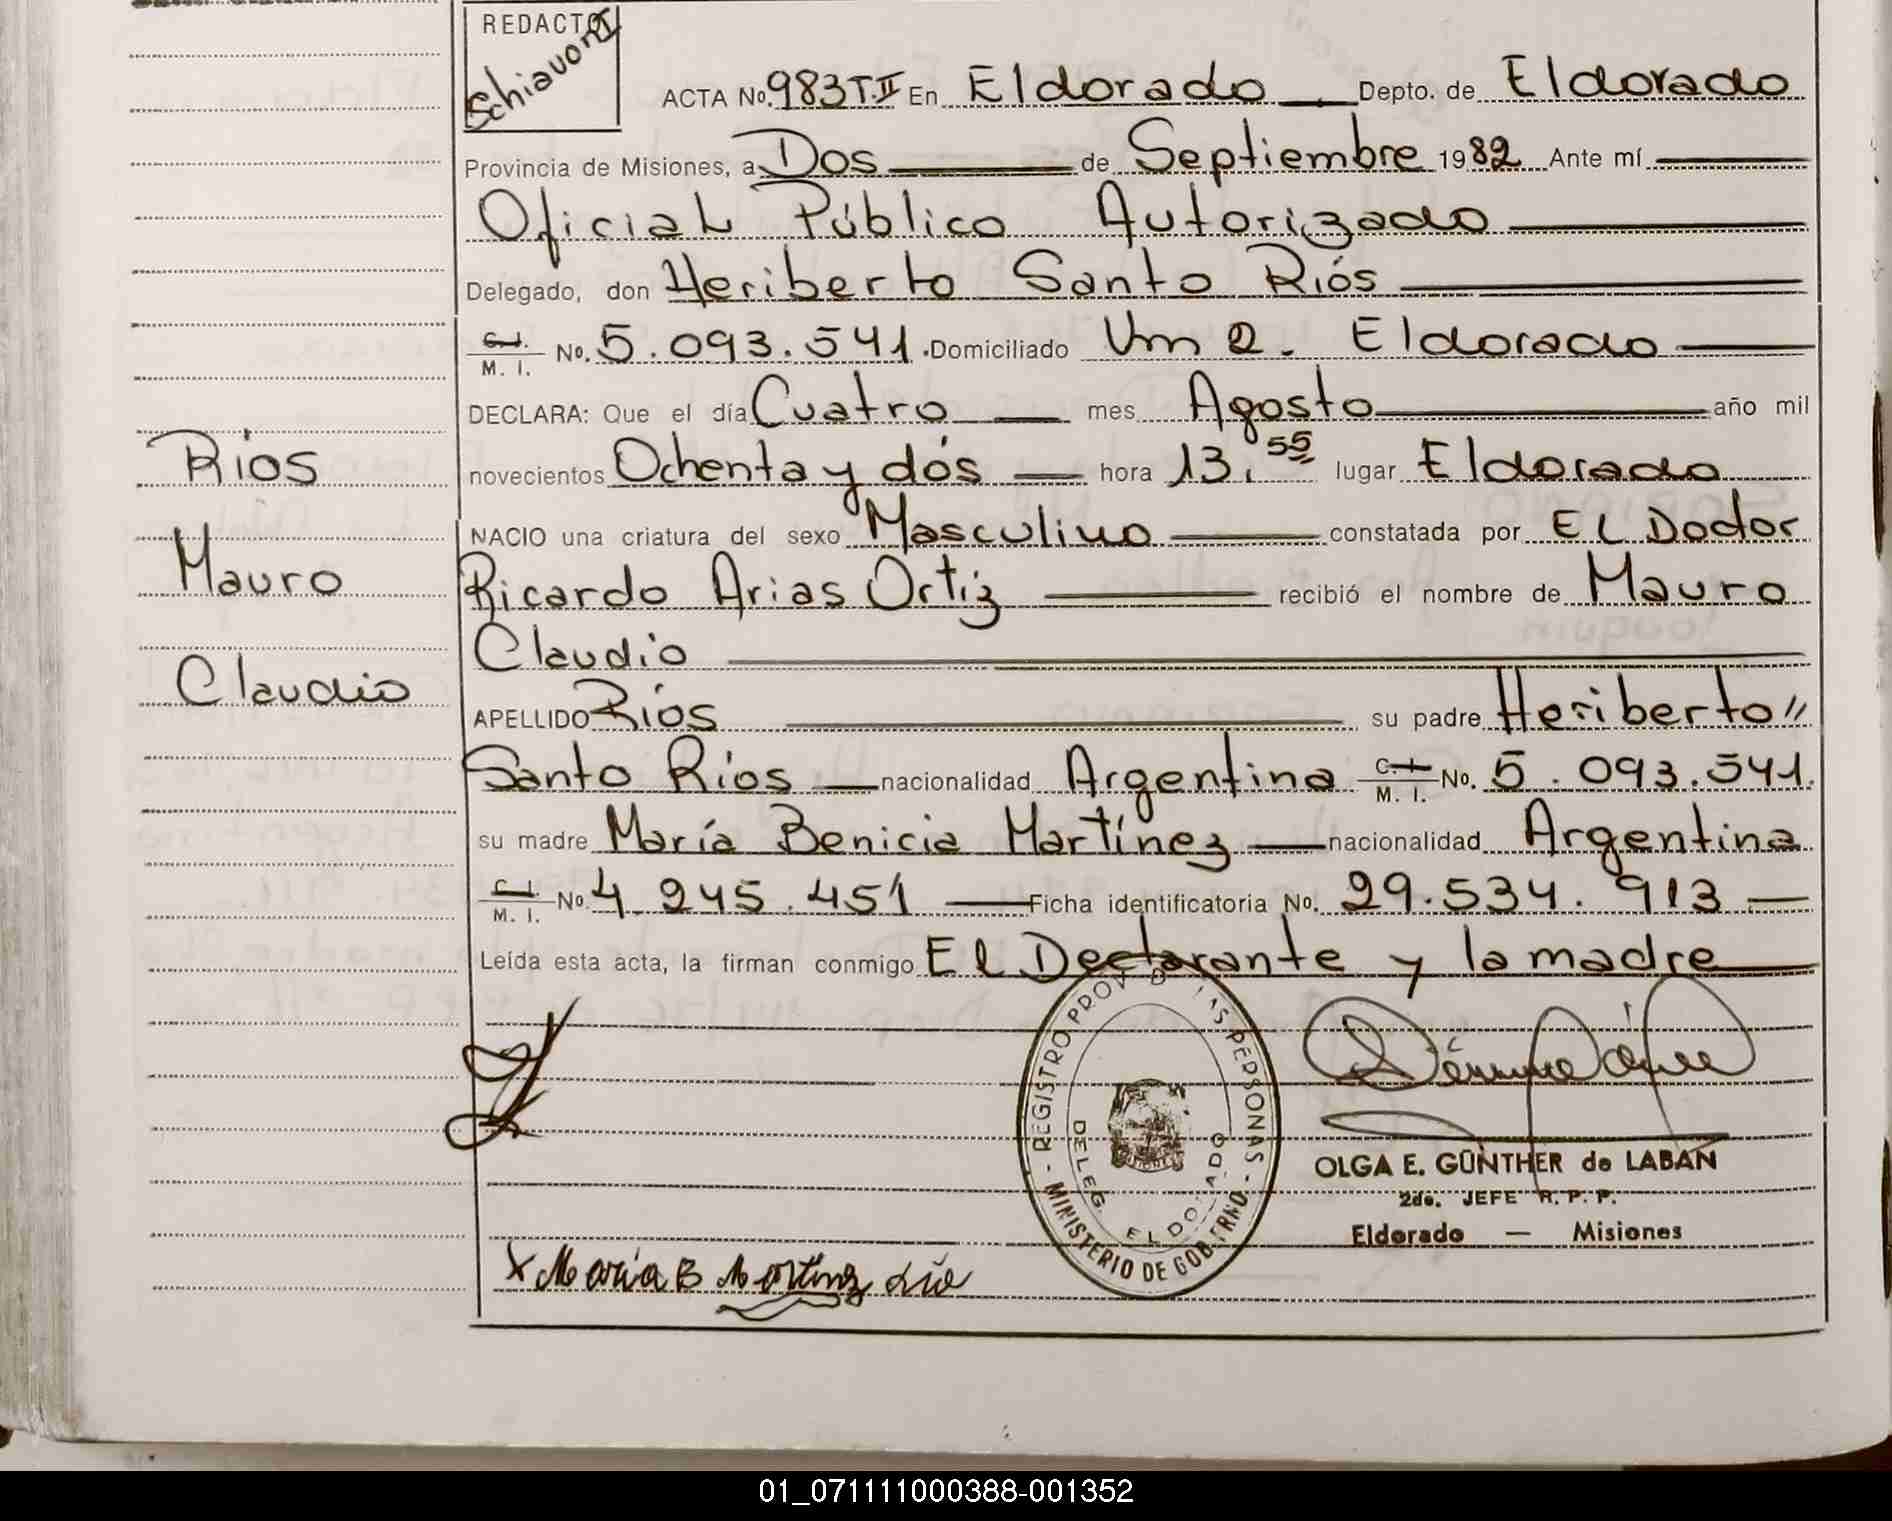 REDACTO
Schiavoni
ACTA No. 983 T.II En Eldorado Depto. de Eldorado
Provincia de Misiones, a Dos de Septiembre 1982 Ante mí
Oficial Público Autorizado
Delegado, don Heriberto Santo Ríos
C.I. M. I. No. 5.093.541. Domiciliado Km 2. Eldorado
DECLARA: Que el día Cuatro mes Agosto año mil
novecientos Ochenta y dós hora 13.55 lugar Eldorado
NACIO una criatura del sexo Masculino constatada por EL Doctor
Ricardo Arias Ortiz recibió el nombre de Mauro
Claudio
APELLIDO Ríos su padre Heriberto //
Santo Ríos nacionalidad Argentina C.I. M. I. No. 5.093.541.
su madre María Benicia Martínez nacionalidad Argentina
C.I. M. I. No. 4.245.451 Ficha identificatoria No. 29.534.913
Leída esta acta, la firman conmigo El Declarante y la madre
Ríos
Mauro
Claudio
- REGISTRO PROV. DE LAS PERSONAS -
MINISTERIO DE GOBIERNO
DELEG. ELDORADO
OLGA E. GÜNTHER de LABAN
2do. JEFE R. P. P.
Eldorado — Misiones
x Maria B Martinez
01_071111000388-001352